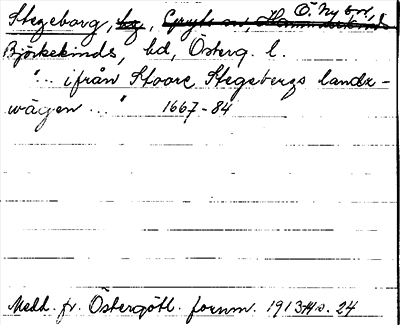 Ö. Ny by,
Stegeborg, hg,
Björkekinds, hd, Österg. l.
"... ifrån Stoore Stegebergs landz-
wägen ..." 1667-84
Medd. fr. Östergötl. fornm. 1913 s. 24